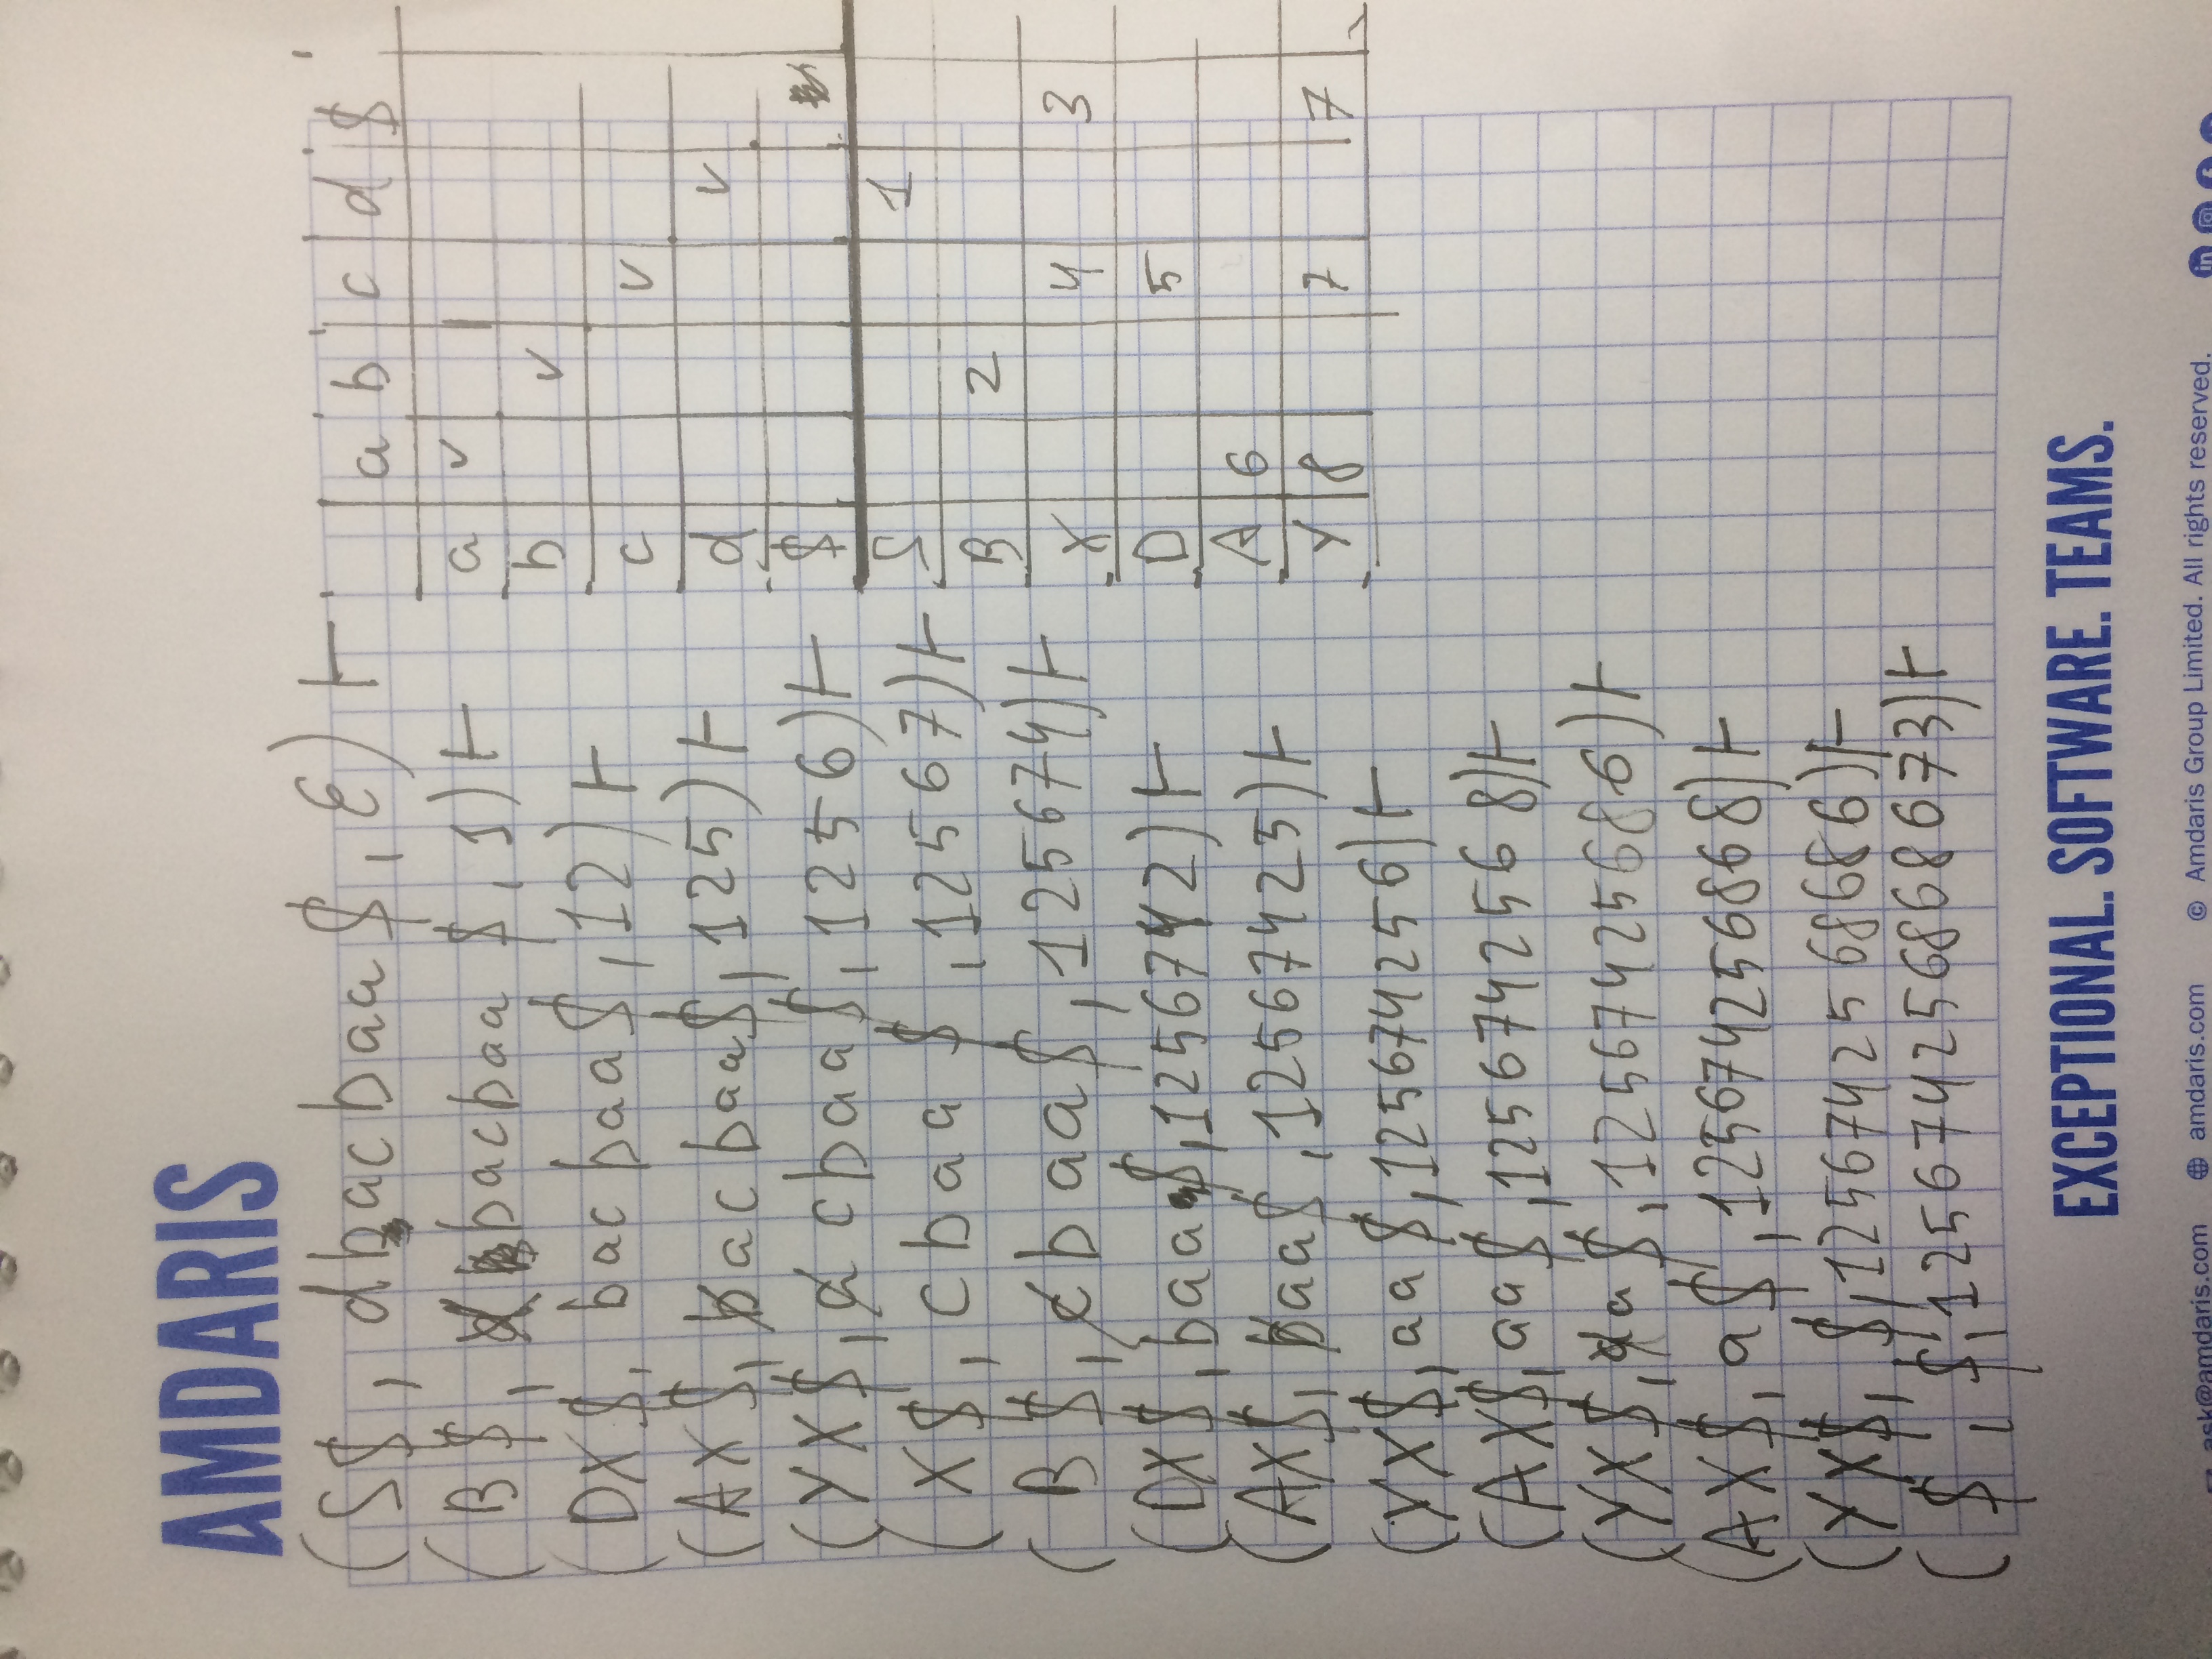 AMDARIS
(S$, dbacbaa$, ε) ⊢
(B$, bacbaa$, 1) ⊢
(DX$, bacbaa$, 12) ⊢
(AX$, bacbaa$, 125) ⊢
(YX$, acbaa$, 1256) ⊢
(X$, cbaa$, 12567) ⊢
(B$, cbaa$, 125674) ⊢
(DX$, baa$, 1256742) ⊢
(AX$, baa$, 12567425) ⊢
(YX$, aa$, 125674256) ⊢
(AX$, aa$, 1256742568) ⊢
(YX$, aa$, 12567425686) ⊢
(AX$, a$, 125674256868) ⊢
(YX$, $, 1256742568686) ⊢
($, $, 125674256868673) ⊢
a b c d $
a ✓
b ✓
c ✓
d ✓
$
S 1
B 2
X 4 3
D 5
A 6
Y 8 7 7
EXCEPTIONAL. SOFTWARE. TEAMS.
ask@amdaris.com amdaris.com © Amdaris Group Limited. All rights reserved.